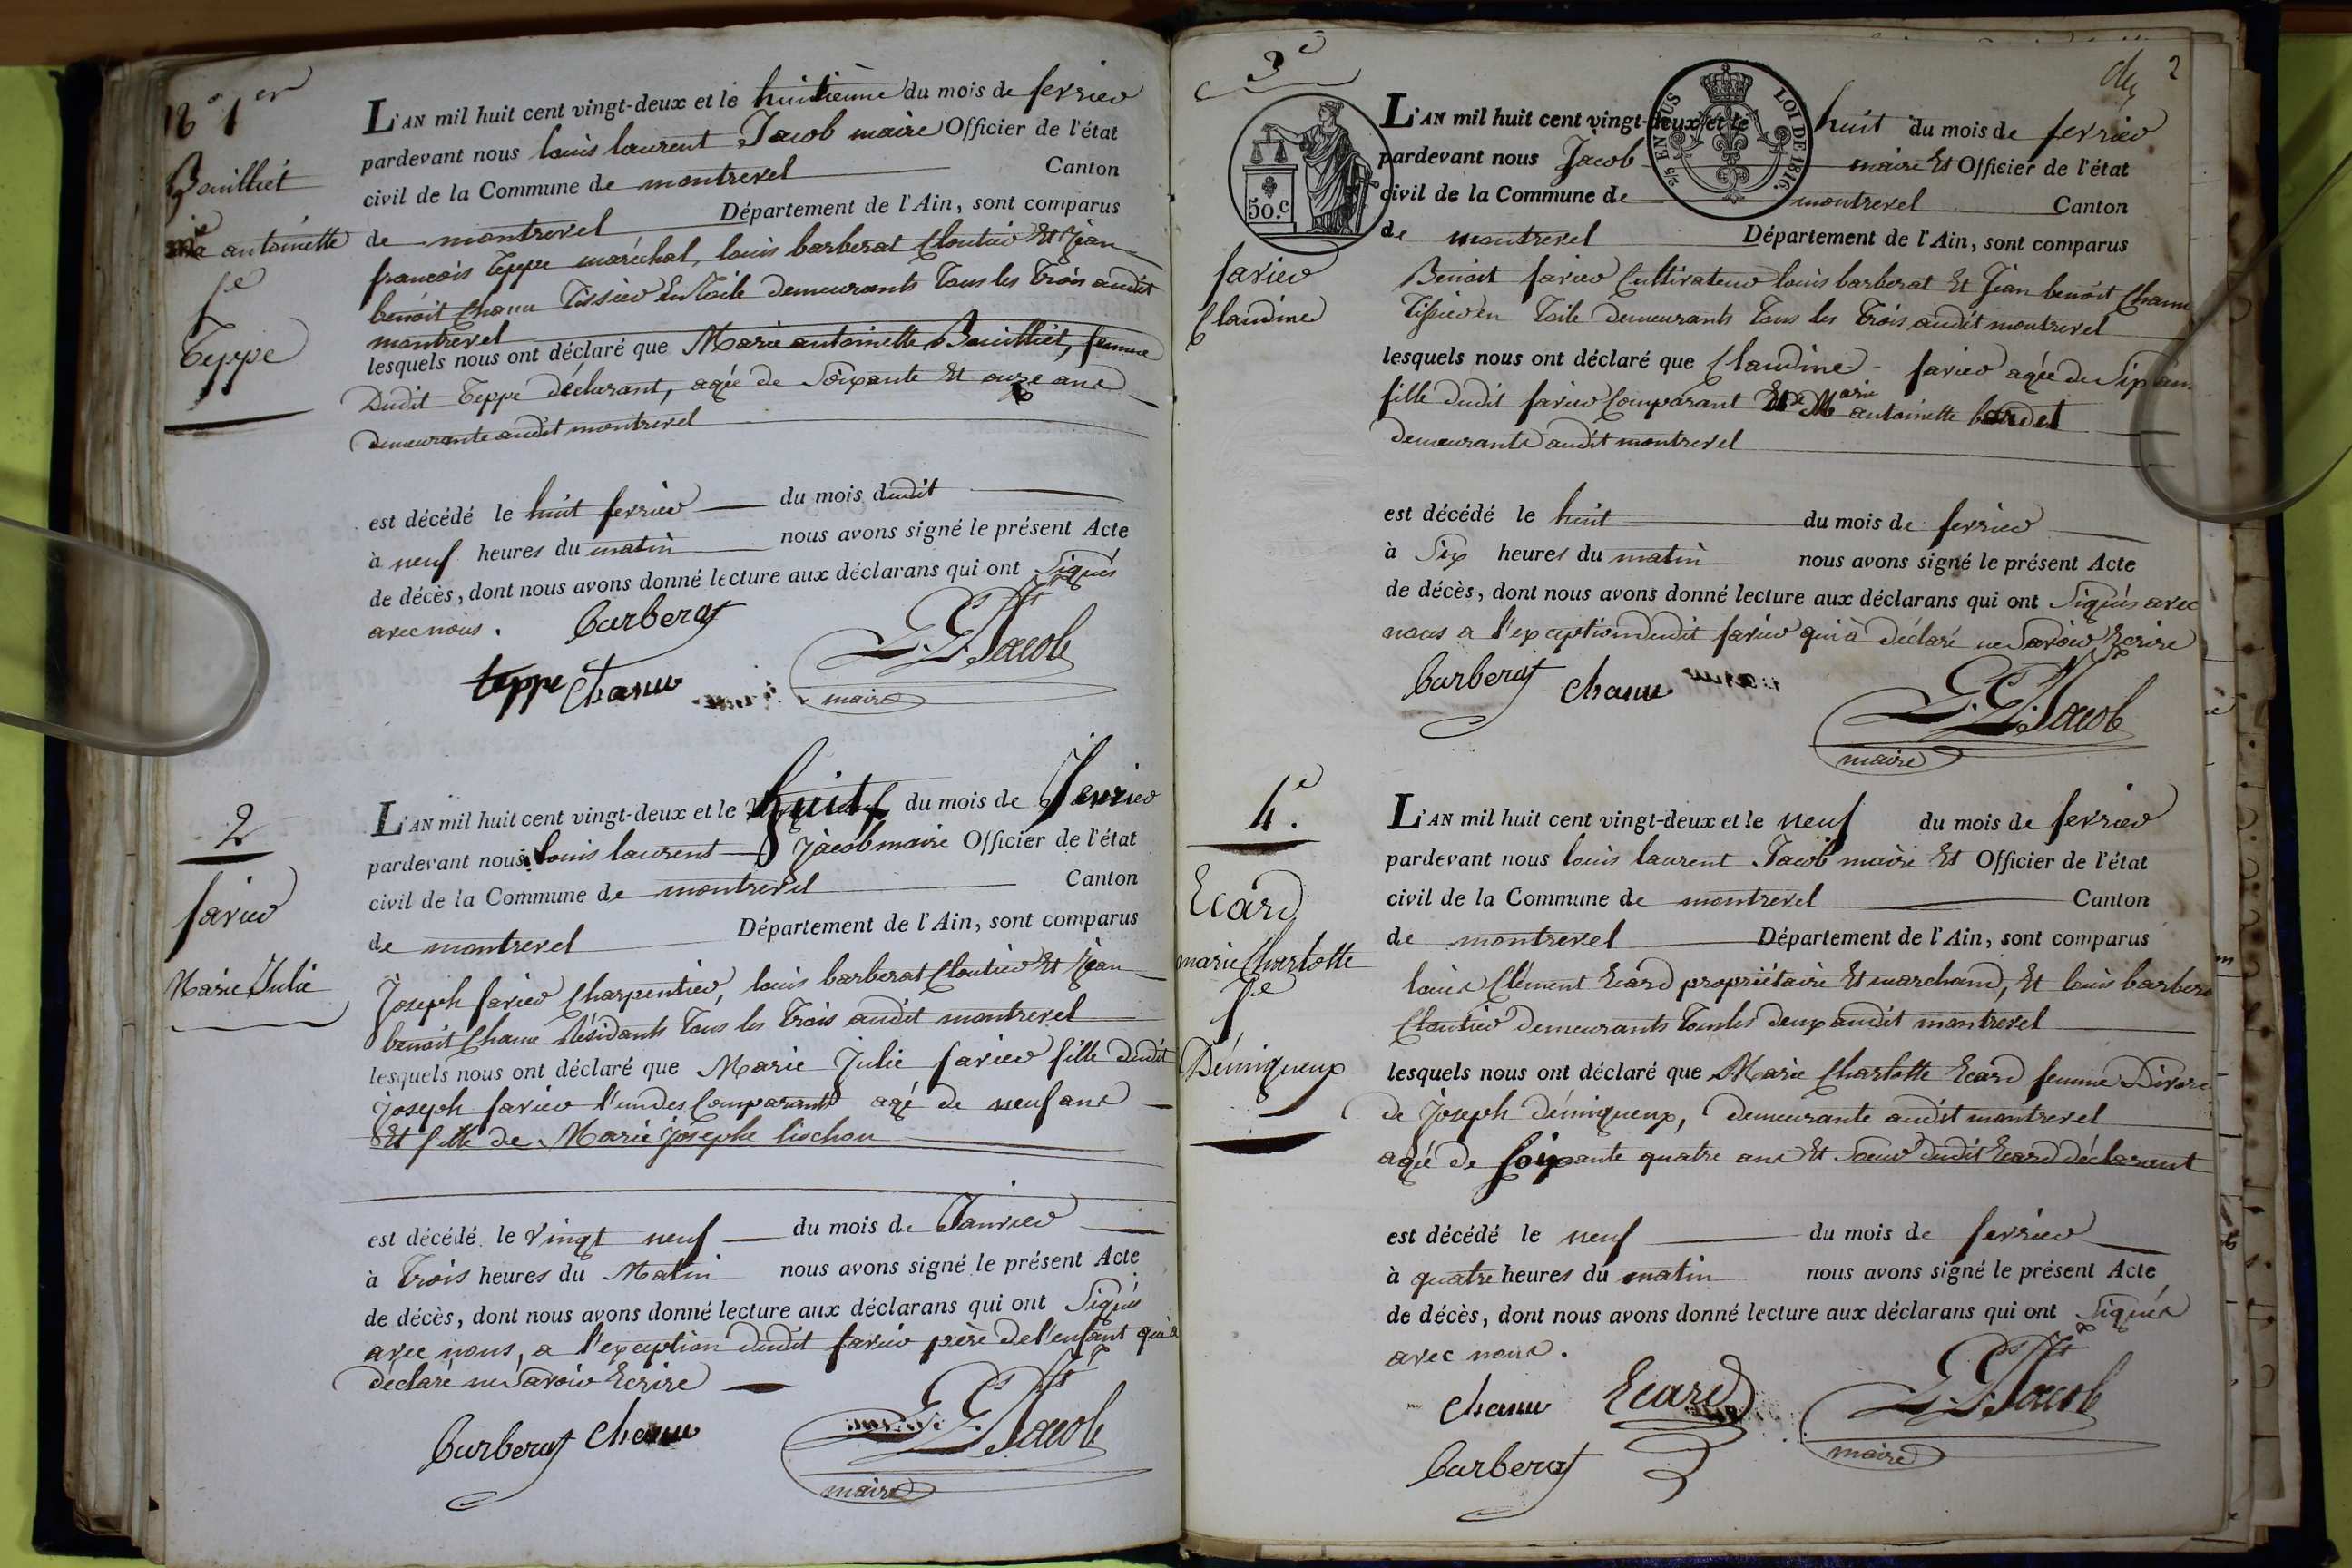 N° 1er
Bouilliet
mie antoinette
fe
Teppe
L'AN mil huit cent vingt-deux et le huitieme du mois de fevrier
pardevant nous louis laurent Jacob maire Officier de l'état
civil de la Commune de montrevel Canton
de montrevel Département de l'Ain, sont comparus
francois Teppe maréchal, louis barberat Cloutier Et Jean
benoit Chanu Tissier En Toile demeurants Tous les Trois audit
montrevel
lesquels nous ont déclaré que Marie antoinette Bouilliet, femme
Dudit Teppe déclarant, agée de Soixante Et onze ans
demeurante audit montrevel
est décédé le huit fevrier du mois dudit
à neuf heures du matin nous avons signé le présent Acte
de décès, dont nous avons donné lecture aux déclarans qui ont Signés
avec nous.
Barberat
Jacob
teppe Chanu
maire
2
farier
Marie Julie
L'AN mil huit cent vingt-deux et le huit du mois de fevrier
pardevant nous louis laurent Jacob maire Officier de l'état
civil de la Commune de montrevel Canton
de montrevel Département de l'Ain, sont comparus
Joseph farier Charpentier, louis barberat Cloutier Et Jean
benoit Chanu Résidants Tous les Trois audit montrevel
lesquels nous ont déclaré que Marie Julie farier fille dudit
Joseph farier l'un des Comparants agé de neuf ans
Et fille de Marie Josephe lischon
est décédé le vingt neuf du mois de Janvier
à Trois heures du Matin nous avons signé le présent Acte
de décès, dont nous avons donné lecture aux déclarans qui ont Signés
avec nous, a l'exception dudit farier père de l'enfant qui a
déclaré ne Savoir Ecrire
Barberat Chanu
Jacob
maire
2
3e
50.c
2/5 EN SUS
LOI DE 1816.
farier
Claudine
L'AN mil huit cent vingt-deux et le huit du mois de fevrier
pardevant nous Jacob maire Et Officier de l'état
civil de la Commune de montrevel Canton
de montrevel Département de l'Ain, sont comparus
Benoit farier Cultivateur louis barberat Et Jean benoit Chanu
Tissier en Toile demeurants Tous les Trois audit montrevel
lesquels nous ont déclaré que Claudine farier agée de Six ans
fille dudit farier Comparant Et de Marie antoinette bordet
demeurante audit montrevel
est décédé le huit du mois de fevrier
à Six heures du matin nous avons signé le présent Acte
de décès, dont nous avons donné lecture aux déclarans qui ont Signés avec
nous a l'exception dudit farier qui à déclaré ne Savoir Ecrire
Barberat Chanu
Jacob
maire
4e.
Ecard
marie Charlotte
fe
Démiqueux
L'AN mil huit cent vingt-deux et le neuf du mois de fevrier
pardevant nous louis laurent Jacob maire Et Officier de l'état
civil de la Commune de montrevel Canton
de montrevel Département de l'Ain, sont comparus
louis Clement Ecard propriétaire Et marchand, Et louis barbera
Cloutier demeurants Tous les deux audit montrevel
lesquels nous ont déclaré que Marie Charlotte Ecard femme Divorc
de Joseph démiqueux, demeurante audit montrevel
agée de Soixante quatre ans Et Sœur dudit Ecard déclarant
est décédé le neuf du mois de fevrier
à quatre heures du matin nous avons signé le présent Acte
de décès, dont nous avons donné lecture aux déclarans qui ont Signés
avec nous.
Chanu Ecard
Jacob
Barberat
maire